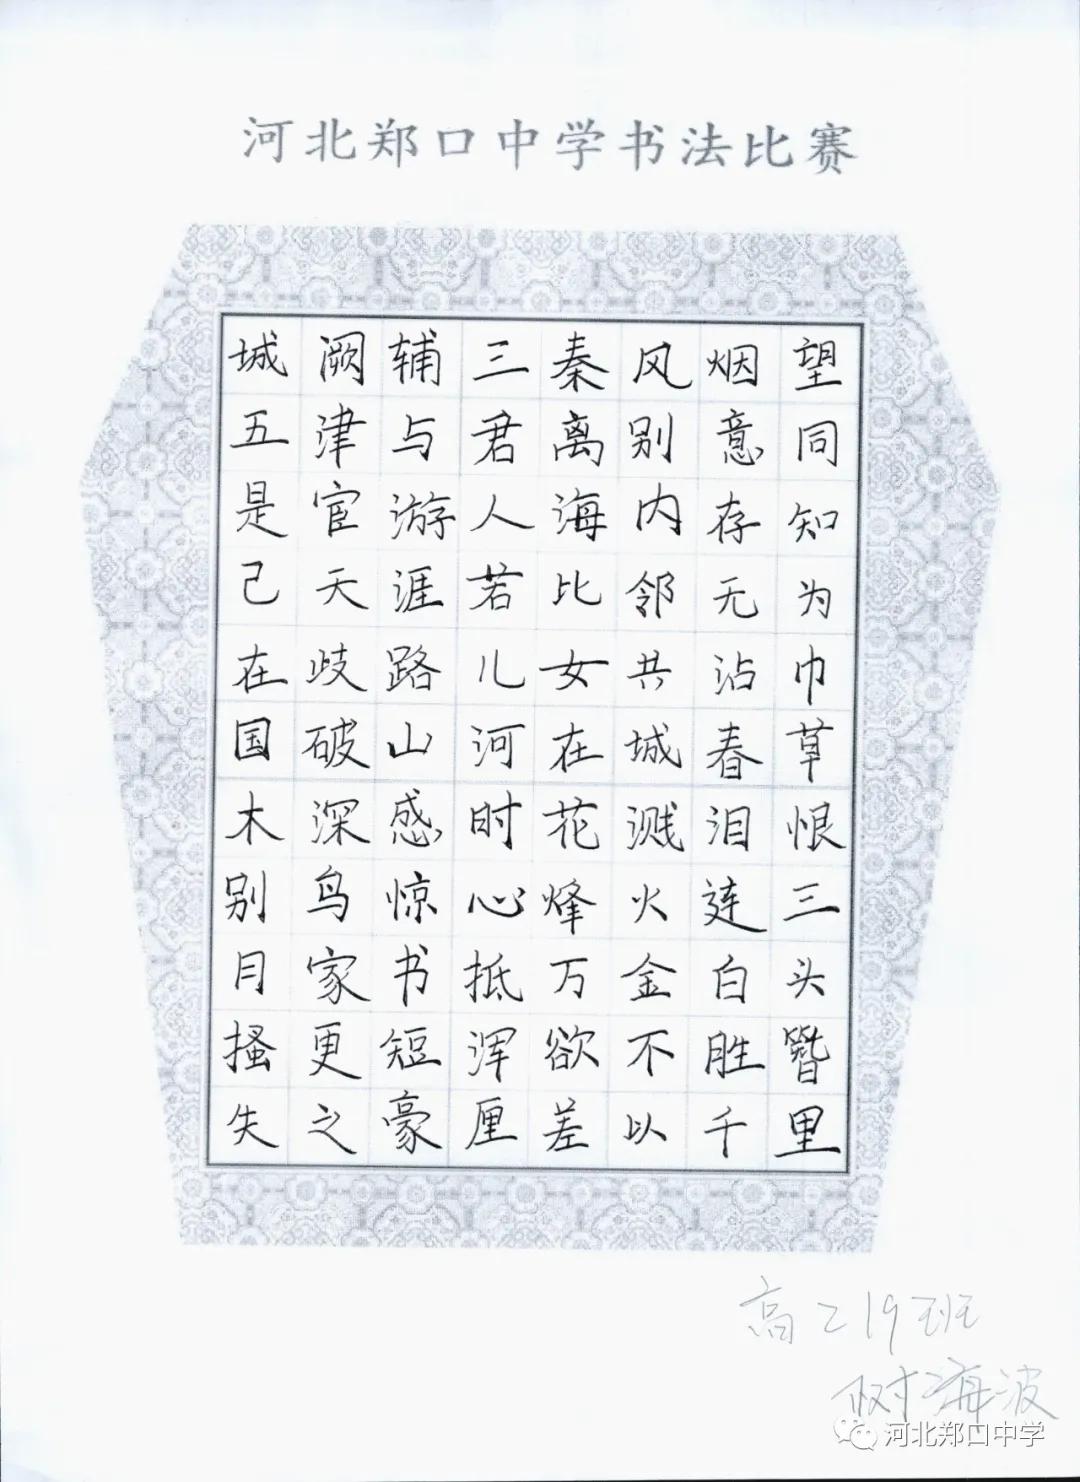 河北郑口中学书法比赛
城阙辅三秦风烟望
五津与君离别意同
是宦游人海内存知
己天涯若比邻无为
在歧路儿女共沾巾
国破山河在城春草
木深感时花溅泪恨
别鸟惊心烽火连三
月家书抵万金白头
搔更短浑欲不胜簪
失之豪厘差以千里
高二19班
树海波
河北郑口中学